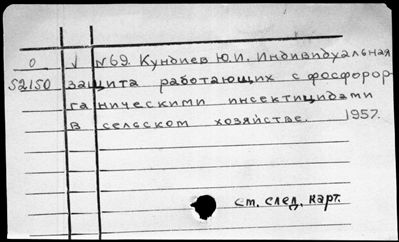 О √ №69. Кундиев Ю.И. Индивидуальная
S2150 защита работающих с фосфорор-
ганическими инсектицидами
в сельском хозяйстве. 1957.
см. след. карт.